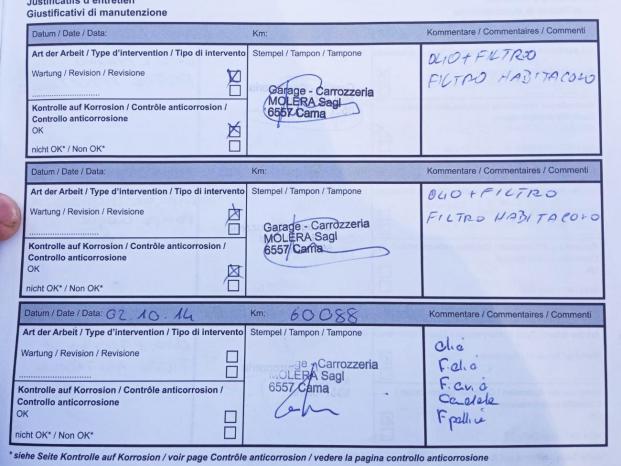 Justificatifs d'entretien
Giustificativi di manutenzione
Datum / Date / Data: Km: Kommentare / Commentaires / Commenti
Art der Arbeit / Type d'intervention / Tipo di intervento Stempel / Tampon / Tampone
OLIO + FILTRO
Wartung / Revision / Revisione
FILTRO HABITACOLO
Garage - Carrozzeria
MOLERA Sagl
6557 Cama
Kontrolle auf Korrosion / Contrôle anticorrosion /
Controllo anticorrosione
OK
nicht OK* / Non OK*
Datum / Date / Data: Km: Kommentare / Commentaires / Commenti
Art der Arbeit / Type d'intervention / Tipo di intervento Stempel / Tampon / Tampone
OLIO + FILTRO
Wartung / Revision / Revisione
FILTRO HABITACOLO
Garage - Carrozzeria
MOLERA Sagl
6557 Cama
Kontrolle auf Korrosion / Contrôle anticorrosion /
Controllo anticorrosione
OK
nicht OK* / Non OK*
Datum / Date / Data: 02.10.14 Km: 60088 Kommentare / Commentaires / Commenti
Art der Arbeit / Type d'intervention / Tipo di intervento Stempel / Tampon / Tampone
Wartung / Revision / Revisione
Carrozzeria
MOLERA Sagl
6557 Cama
Kontrolle auf Korrosion / Contrôle anticorrosion /
Controllo anticorrosione
OK
nicht OK* / Non OK*
Olio
F. olio
F. aria
Candele
F polline
* siehe Seite Kontrolle auf Korrosion / voir page Contrôle anticorrosion / vedere la pagina controllo anticorrosione